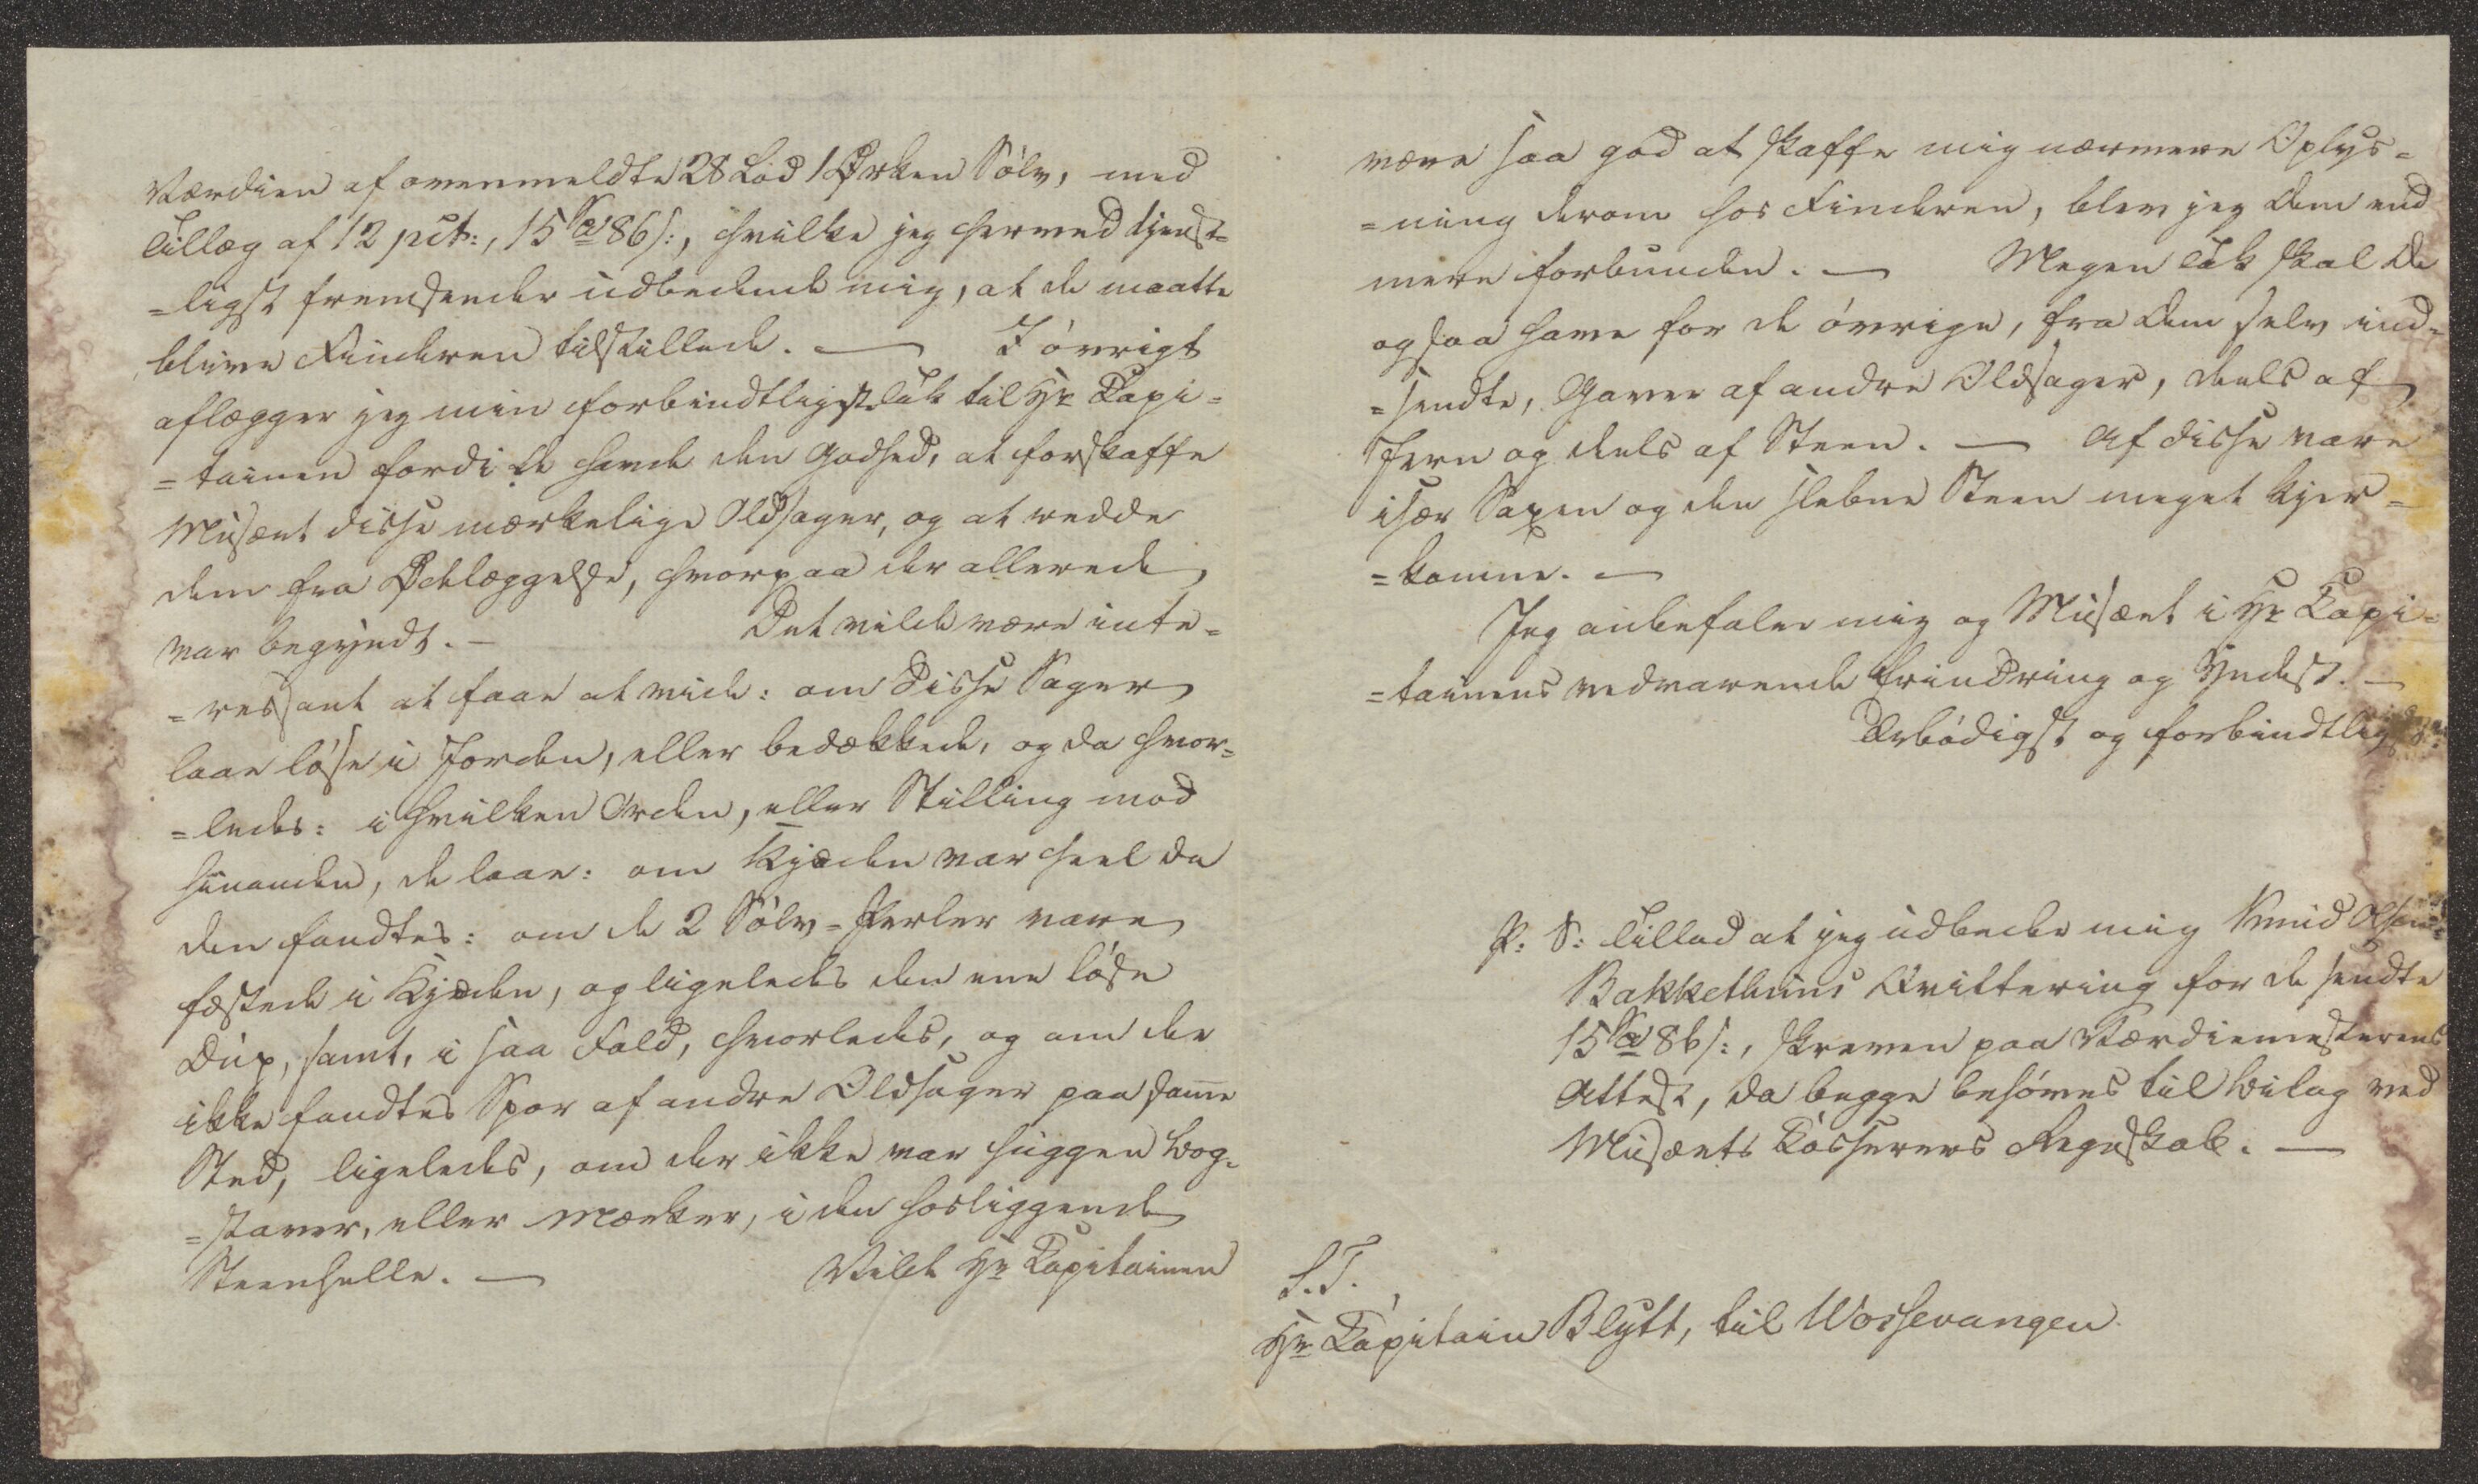 Værdien af ovenmeldte 28 Lod 1 Ørken Sølv, med
Tillæg af 12 pct:, 15 Sp 86 s:, hvilke jeg herved tjenst=
=ligst fremsender udbedende mig, at de maatte
blive Finderen tilstillede. — I øvrigt
aflægger jeg min forbindtligste Tak til Hr Capi=
=tainen fordi De havde den Godhed, at forskaffe
Musæet disse mærkelige Oldsager, og at redde
dem fra Ødelæggelse, hvorpaa der allerede
var begyndt. — Det vilde være inte=
=ressant at faae at vide: om disse Sager
laae løse i Jorden, eller bedækkede, og da hvor=
=ledes: i hvilken Orden, eller Stilling mod
hinanden, de laae: om Kjæden var heel da
den fandtes: om de 2 Sølv=Perler vare
fæstede i Kjæden, og ligeledes den ene løse
Dup, samt, i saa Fald, hvorledes, og om der
ikke fandtes Spor af andre Oldsager paa samme
Sted, ligeledes, om der ikke var huggen Bog=
=staver, eller Mærker, i den hosliggende
Steenhelle. — Vilde Hr Capitainen
være saa god at skaffe mig nærmere Oplys=
=ning derom hos Finderen, blev jeg Dem end
mere forbunden. — Megen Tak skal De
ogsaa have for de øvrige, fra Dem selv ind=
=sendte, Gaver af andre Oldsager, deels af
Jern og deels af Steen. — Af disse vare
især Saxen og den slebne Steen meget kjer=
=komne. —
Jeg anbefaler mig og Musæet i Hr Capi=
=tainens vedvarende Erindring og Yndest. —
Ærbødigst og forbindtligst
P. S: Tillad at jeg udbeder mig Knud Olsen
Bakkethuns Qvittering for de sendte
15 Sp 86 s:, skreven paa Værdiemesterens
Attest, da begge behøves til Bilag ved
Musæets Casserers Regnskab. —
S. T.
Hr Capitain Blytt, til Wossevangen.